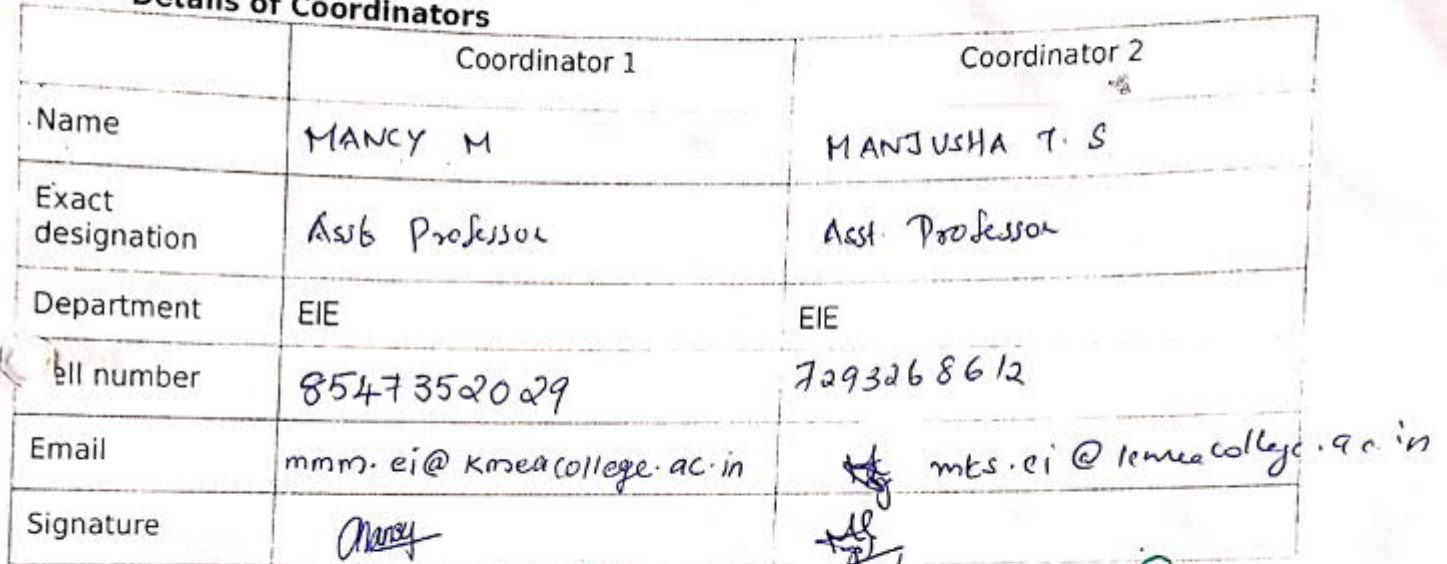 Details of Coordinators
Coordinator 1 Coordinator 2
Name MANCY M MANJUSHA T. S
Exact
designation Asst Professor Asst. Professor
Department EIE EIE
ell number 8547352029 7293268612
Email mmm.ei@kmeacollege.ac.in mts.ei@kmeacollege.ac.in
Signature Mancy